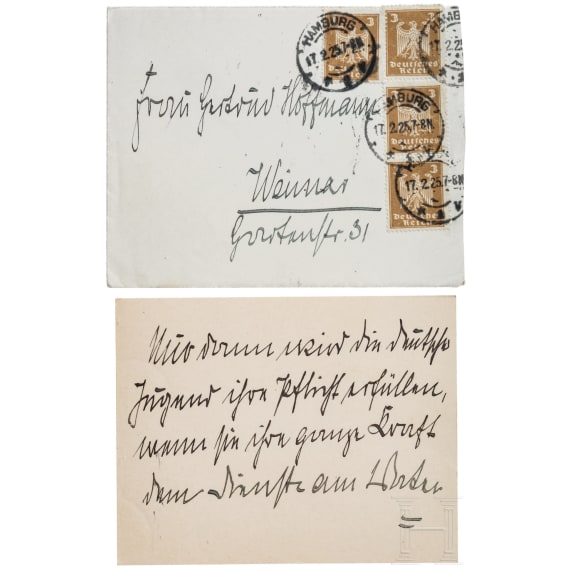 HAMBURG
17.2.25.7-8N.
3
3
Deutsches
Reich
HAMBURG
17.2.25.7-8N.
3
Deutsches
3
17.2.25.7-8N.
Deutsches
Reich
Frau Gertrud Hoffmann
Weimar
Gartenstr. 31
Nur dann wird die deutsche
Jugend ihre Pflicht erfüllen,
wenn sie ihre ganze Kraft
dem Dienste am Vater
=